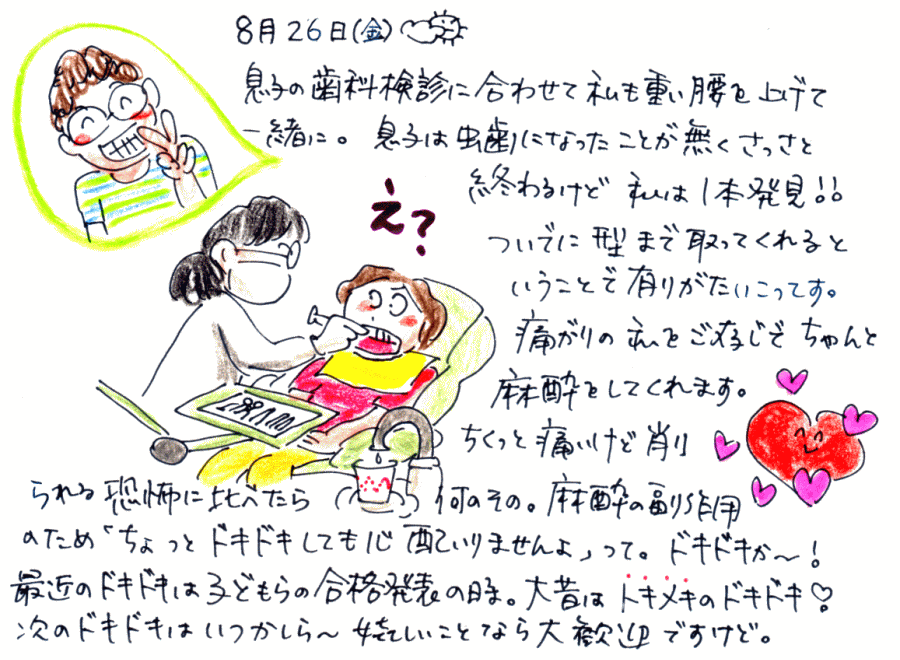 8月26日(金)
息子の歯科検診に合わせて私も重い腰を上げて
一緒に。息子は虫歯になったことが無くさっさと
終わるけど私は1本発見!!
え?
ついでに型まで取ってくれると
いうことで有りがたいこってす。
痛がりの私をご存じで ちゃんと
麻酔をしてくれます。
ちくっと痛いけど削り
られる恐怖に比べたら 何のその。麻酔の副作用
のため「ちょっとドキドキしても心配いりませんよ」って。ドキドキか〜!
最近のドキドキは子どもらの合格発表の時。大昔はトキメキのドキドキ♡
次のドキドキはいつかしら〜 嬉しいことなら大歓迎ですけど。